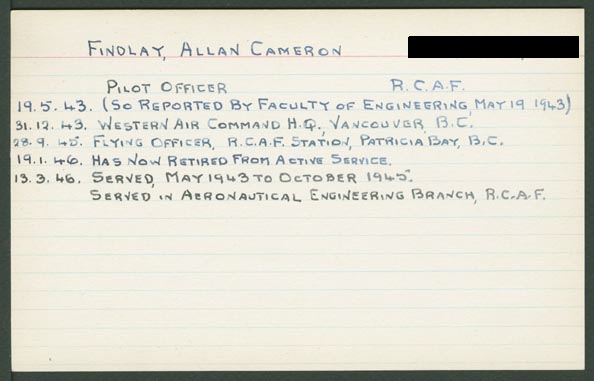 FINDLAY, ALLAN CAMERON
PILOT OFFICER R.C.A.F.
19.5.43. (SO REPORTED BY FACULTY OF ENGINEERING, MAY 19 1943)
31.12.43. WESTERN AIR COMMAND H.Q., VANCOUVER, B.C.
28.9.45. FLYING OFFICER, R.C.A.F. STATION, PATRICIA BAY, B.C.
19.1.46. HAS NOW RETIRED FROM ACTIVE SERVICE.
13.3.46. SERVED, MAY 1943 TO OCTOBER 1945.
SERVED IN AERONAUTICAL ENGINEERING BRANCH, R.C.A.F.